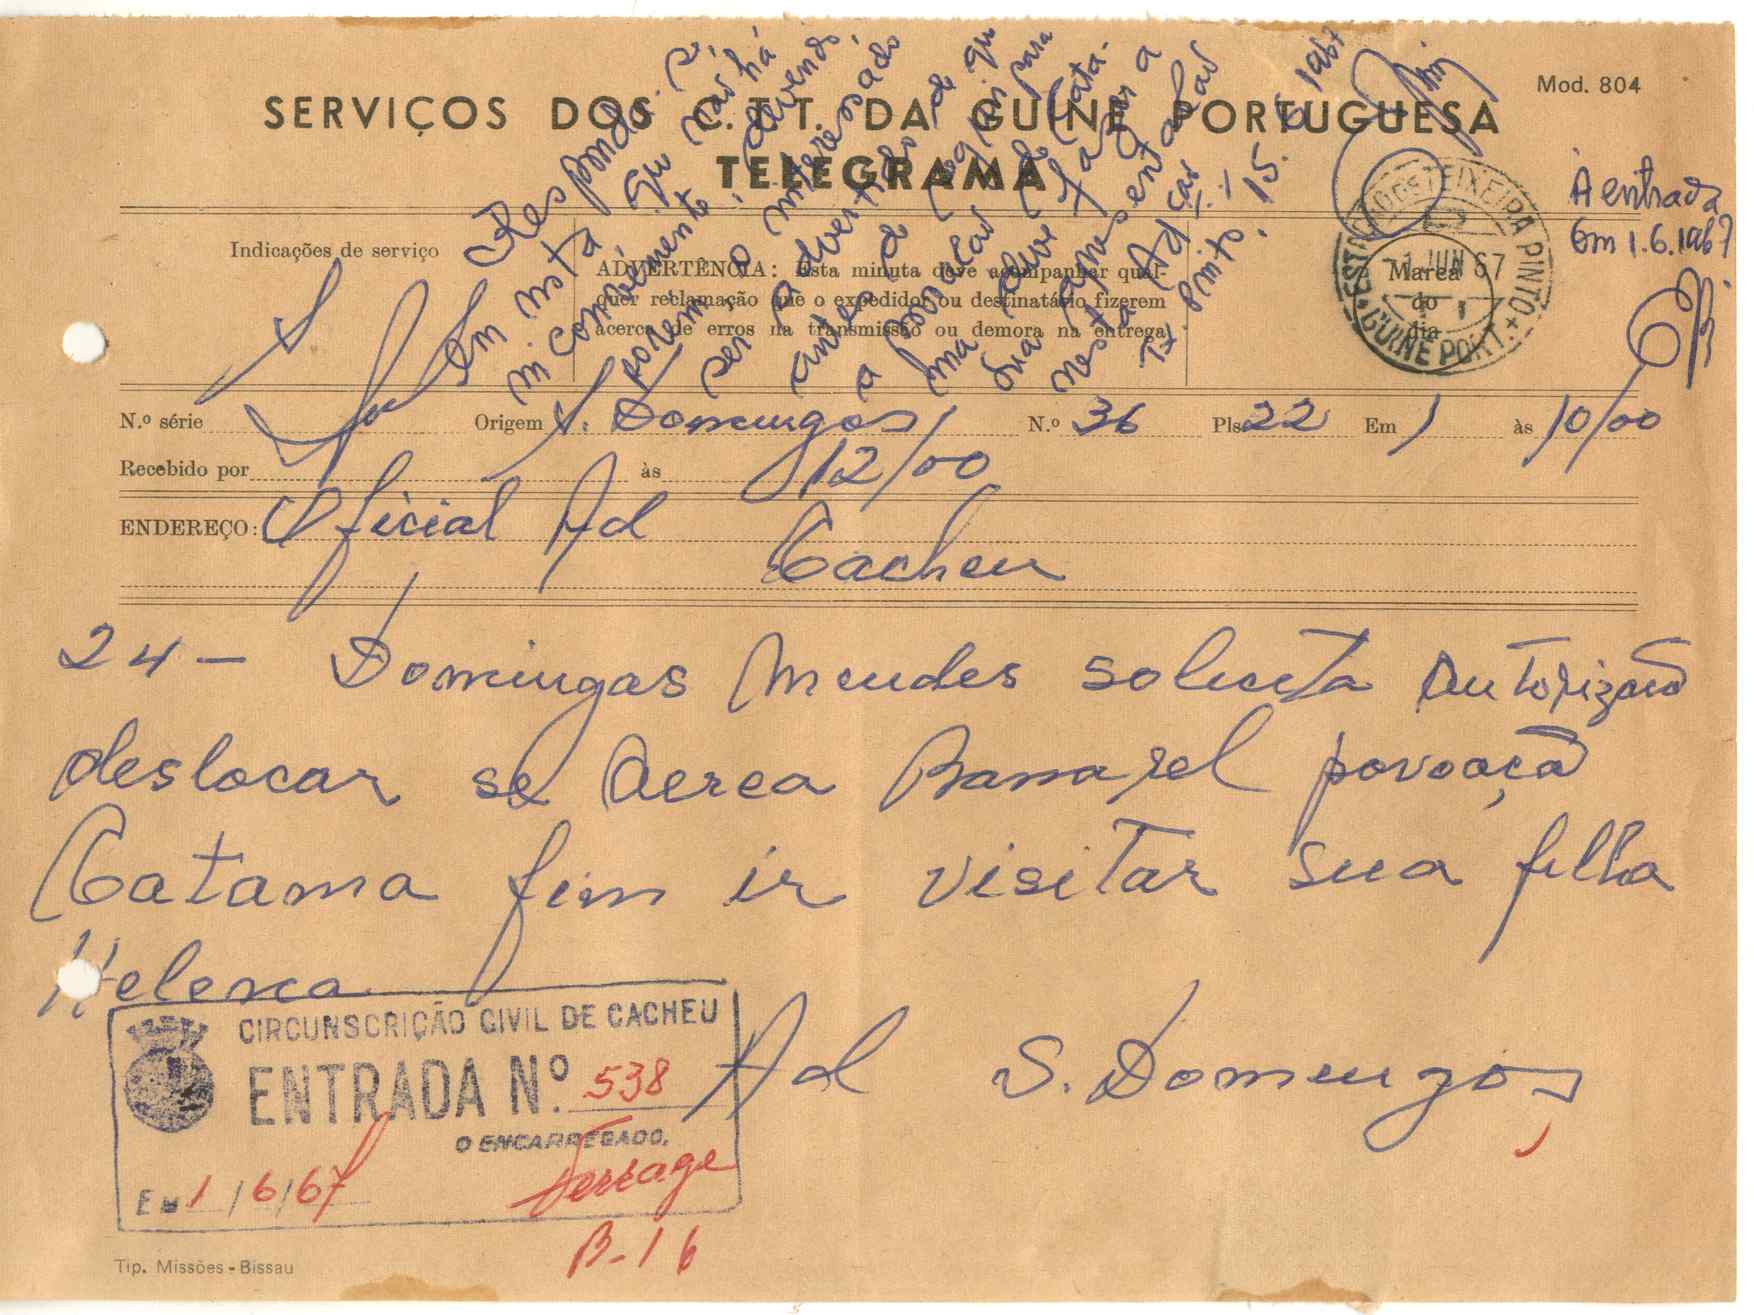 Mod. 804
SERVIÇOS DOS C.T.T. DA GUINÉ PORTUGUESA
TELEGRAMA
Responda-se
em nota que não há
inconveniente, devendo,
porém o interessado
ser advertido de que
antes de seguir para
a povoação de Cata-
ma deve fazer a
sua apresentação
nesta Ad
T. Pinto, 15.6.1967
À entrada
Em 1.6.1967
ESTAÇÃO DE TEIXEIRA PINTO
1 JUN 67
GUINÉ PORT.
Marca
do
dia
Indicações de serviço
ADVERTÊNCIA: Esta minuta deve acompanhar qual-
quer reclamação que o expedidor ou destinatário fizerem
acerca de erros na transmissão ou demora na entrega
N.º série Origem S. Domingos N.º 36 Pls 22 Em 1 às 10/00
Recebido por às 12/00
ENDEREÇO: Oficial Ad
Cacheu
24 - Domingas Mendes solicita autorização
deslocar se aerea povoação
Catama fim ir visitar sua filha
Helena
Ad S. Domingos
CIRCUNSCRIÇÃO CIVIL DE CACHEU
ENTRADA N.º 538
O ENCARREGADO,
Em 1/6/67
B-16
Tip. Missões - Bissau